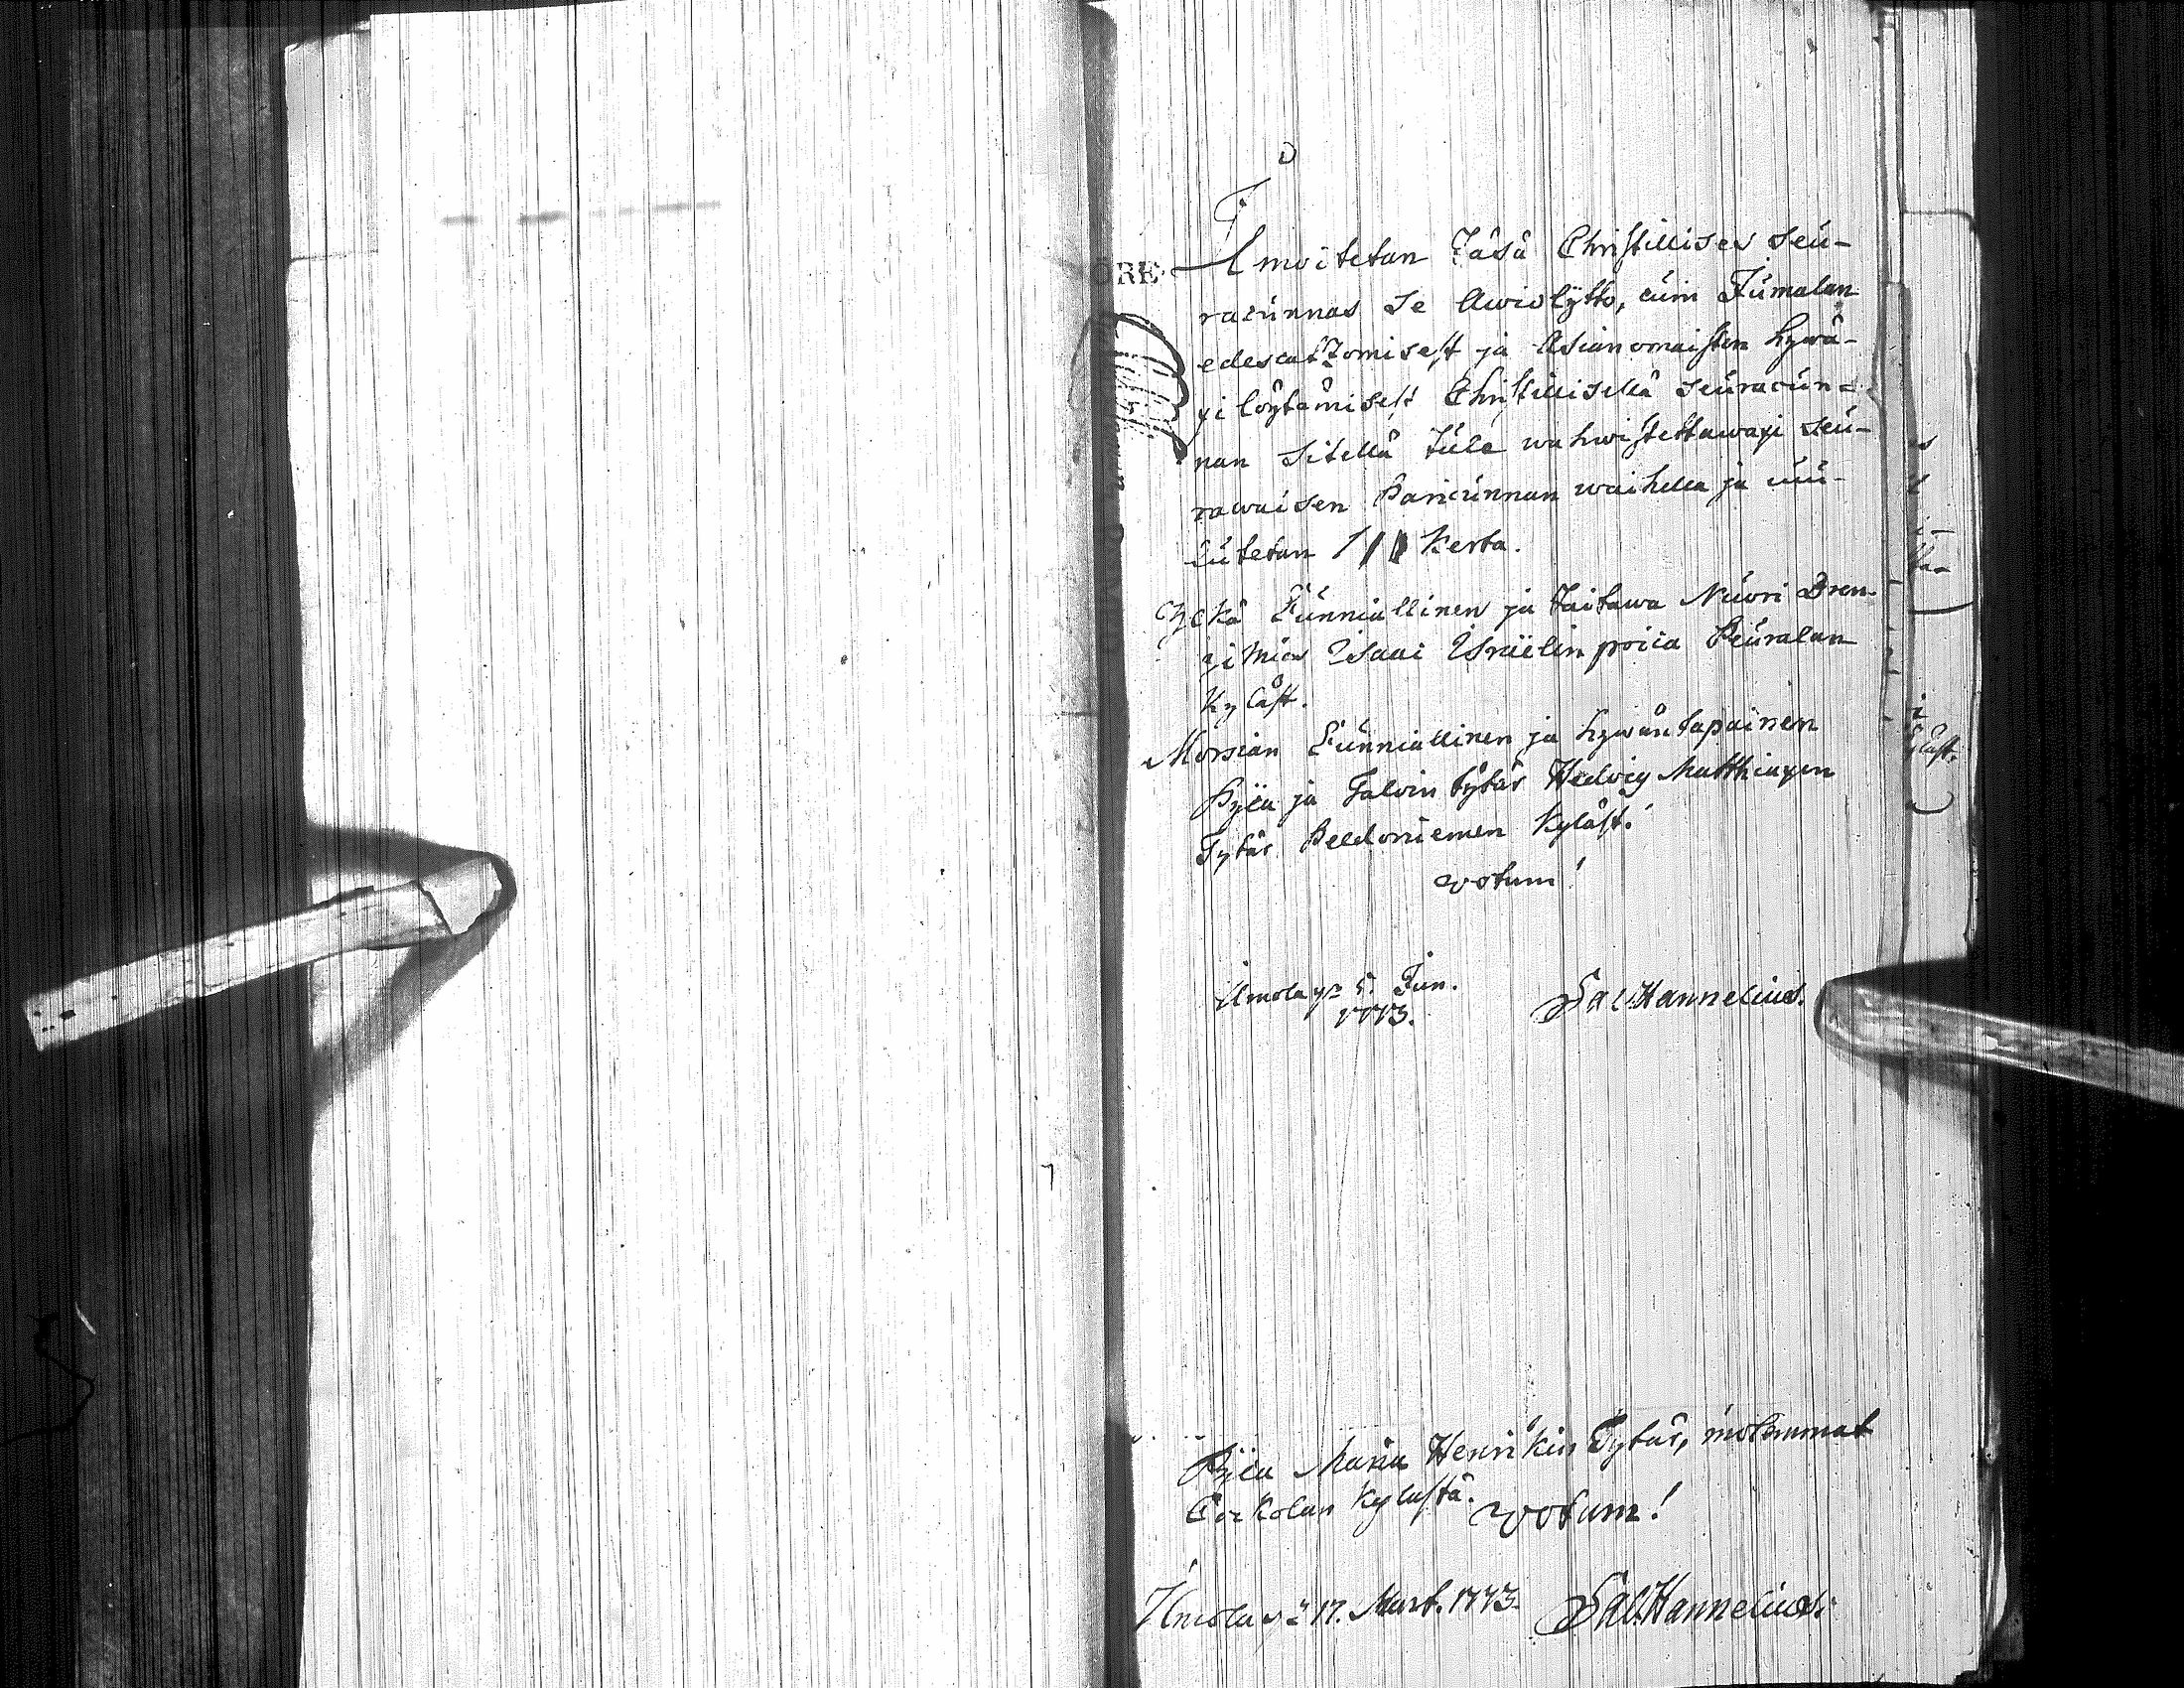 ÖRE
Ilmoitetan Täsä Christillises Seu-
racunnas Se Awiokäytto, cuin Jumalan
edescattzomisest ja Asianomaisten hywä-
xi löytämisest Christillisellä Seuracun-
nan Sitellä tule wahwistettawaxi Seu-
rawaisen Pariscunnan waihella ja cuu-
lutetan 1 | | kerta.
Ylkä Cunniallinen ja Taitawa Nuori Dren-
gi Mies Isaac Israelin poica Peuralan
Kyläst.
Morsian Cunniallinen ja hywäntapainen
Pijca ja Taloin tytär Hedvig Matthiaxen
Tytär Peldoniemen Kyläst.
votum!
Ilmola yp 5. Jun.
1773.
Sal. Hannelius.
Pijca Maria Henrikin Tytär, molemmat
Kylästä.
votum!
Ilmola 17. Mart. 1773.
Sal. Hannelius.
yläst.